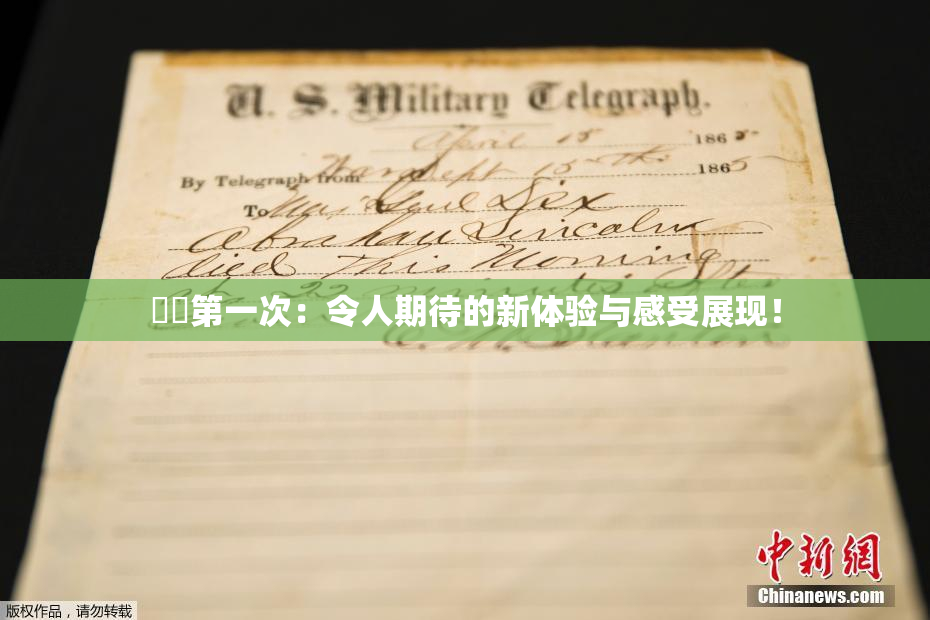 U. S. Military Telegraph.
April 15 1865.
By Telegraph from War Dept 15th 1865
To Maj Genl Dix
Abraham Lincoln
died This Morning
22 minutes after
第一次：令人期待的新体验与感受展现！
E. M. Stanton
中新网
Chinanews.com
版权作品，请勿转载